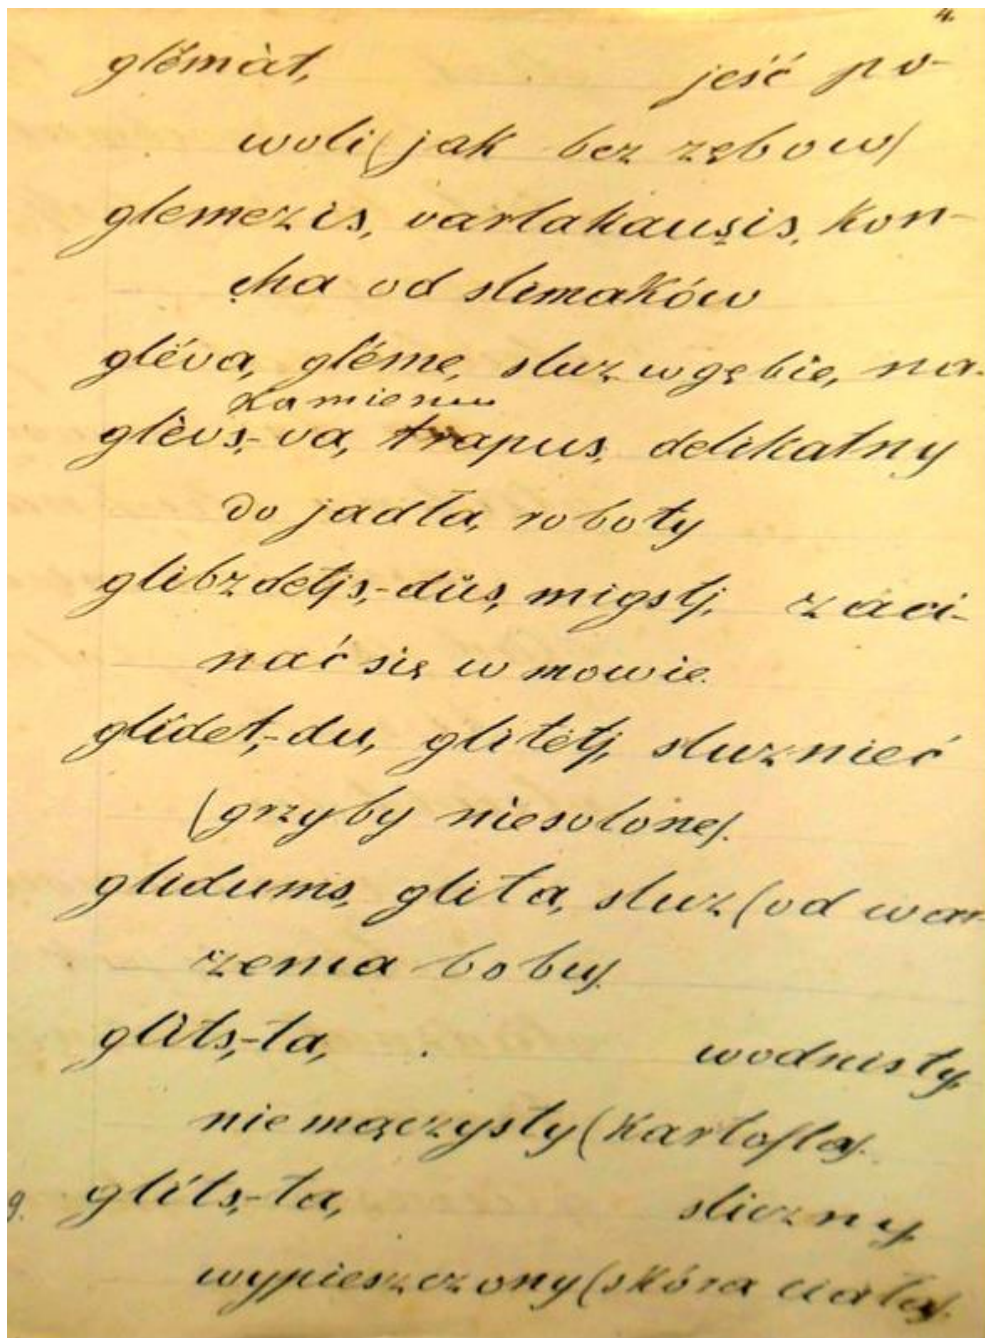 4.
glĕmàt, jeść po-
woli (jak bez zębow)
glemezis, varlakauşis, kon-
cha od slimaków
glëva, gléme, sluz w gębie, na
kamieniu
glèvs,-va, trapus, delikatny
do jadła, roboty
glibzdetjs,-důs, migstj, zaci-
nać się w mowie.
glidet,-du, glitétj, sluznieć
(grzyby niesolone).
glidums, glita, sluz (od war-
zenia bobu).
glits,-ta, wodnisty,
niemączysty (kartofla).
g. glíts,-ta, sliczny
wypieszczony (skóra ciała).